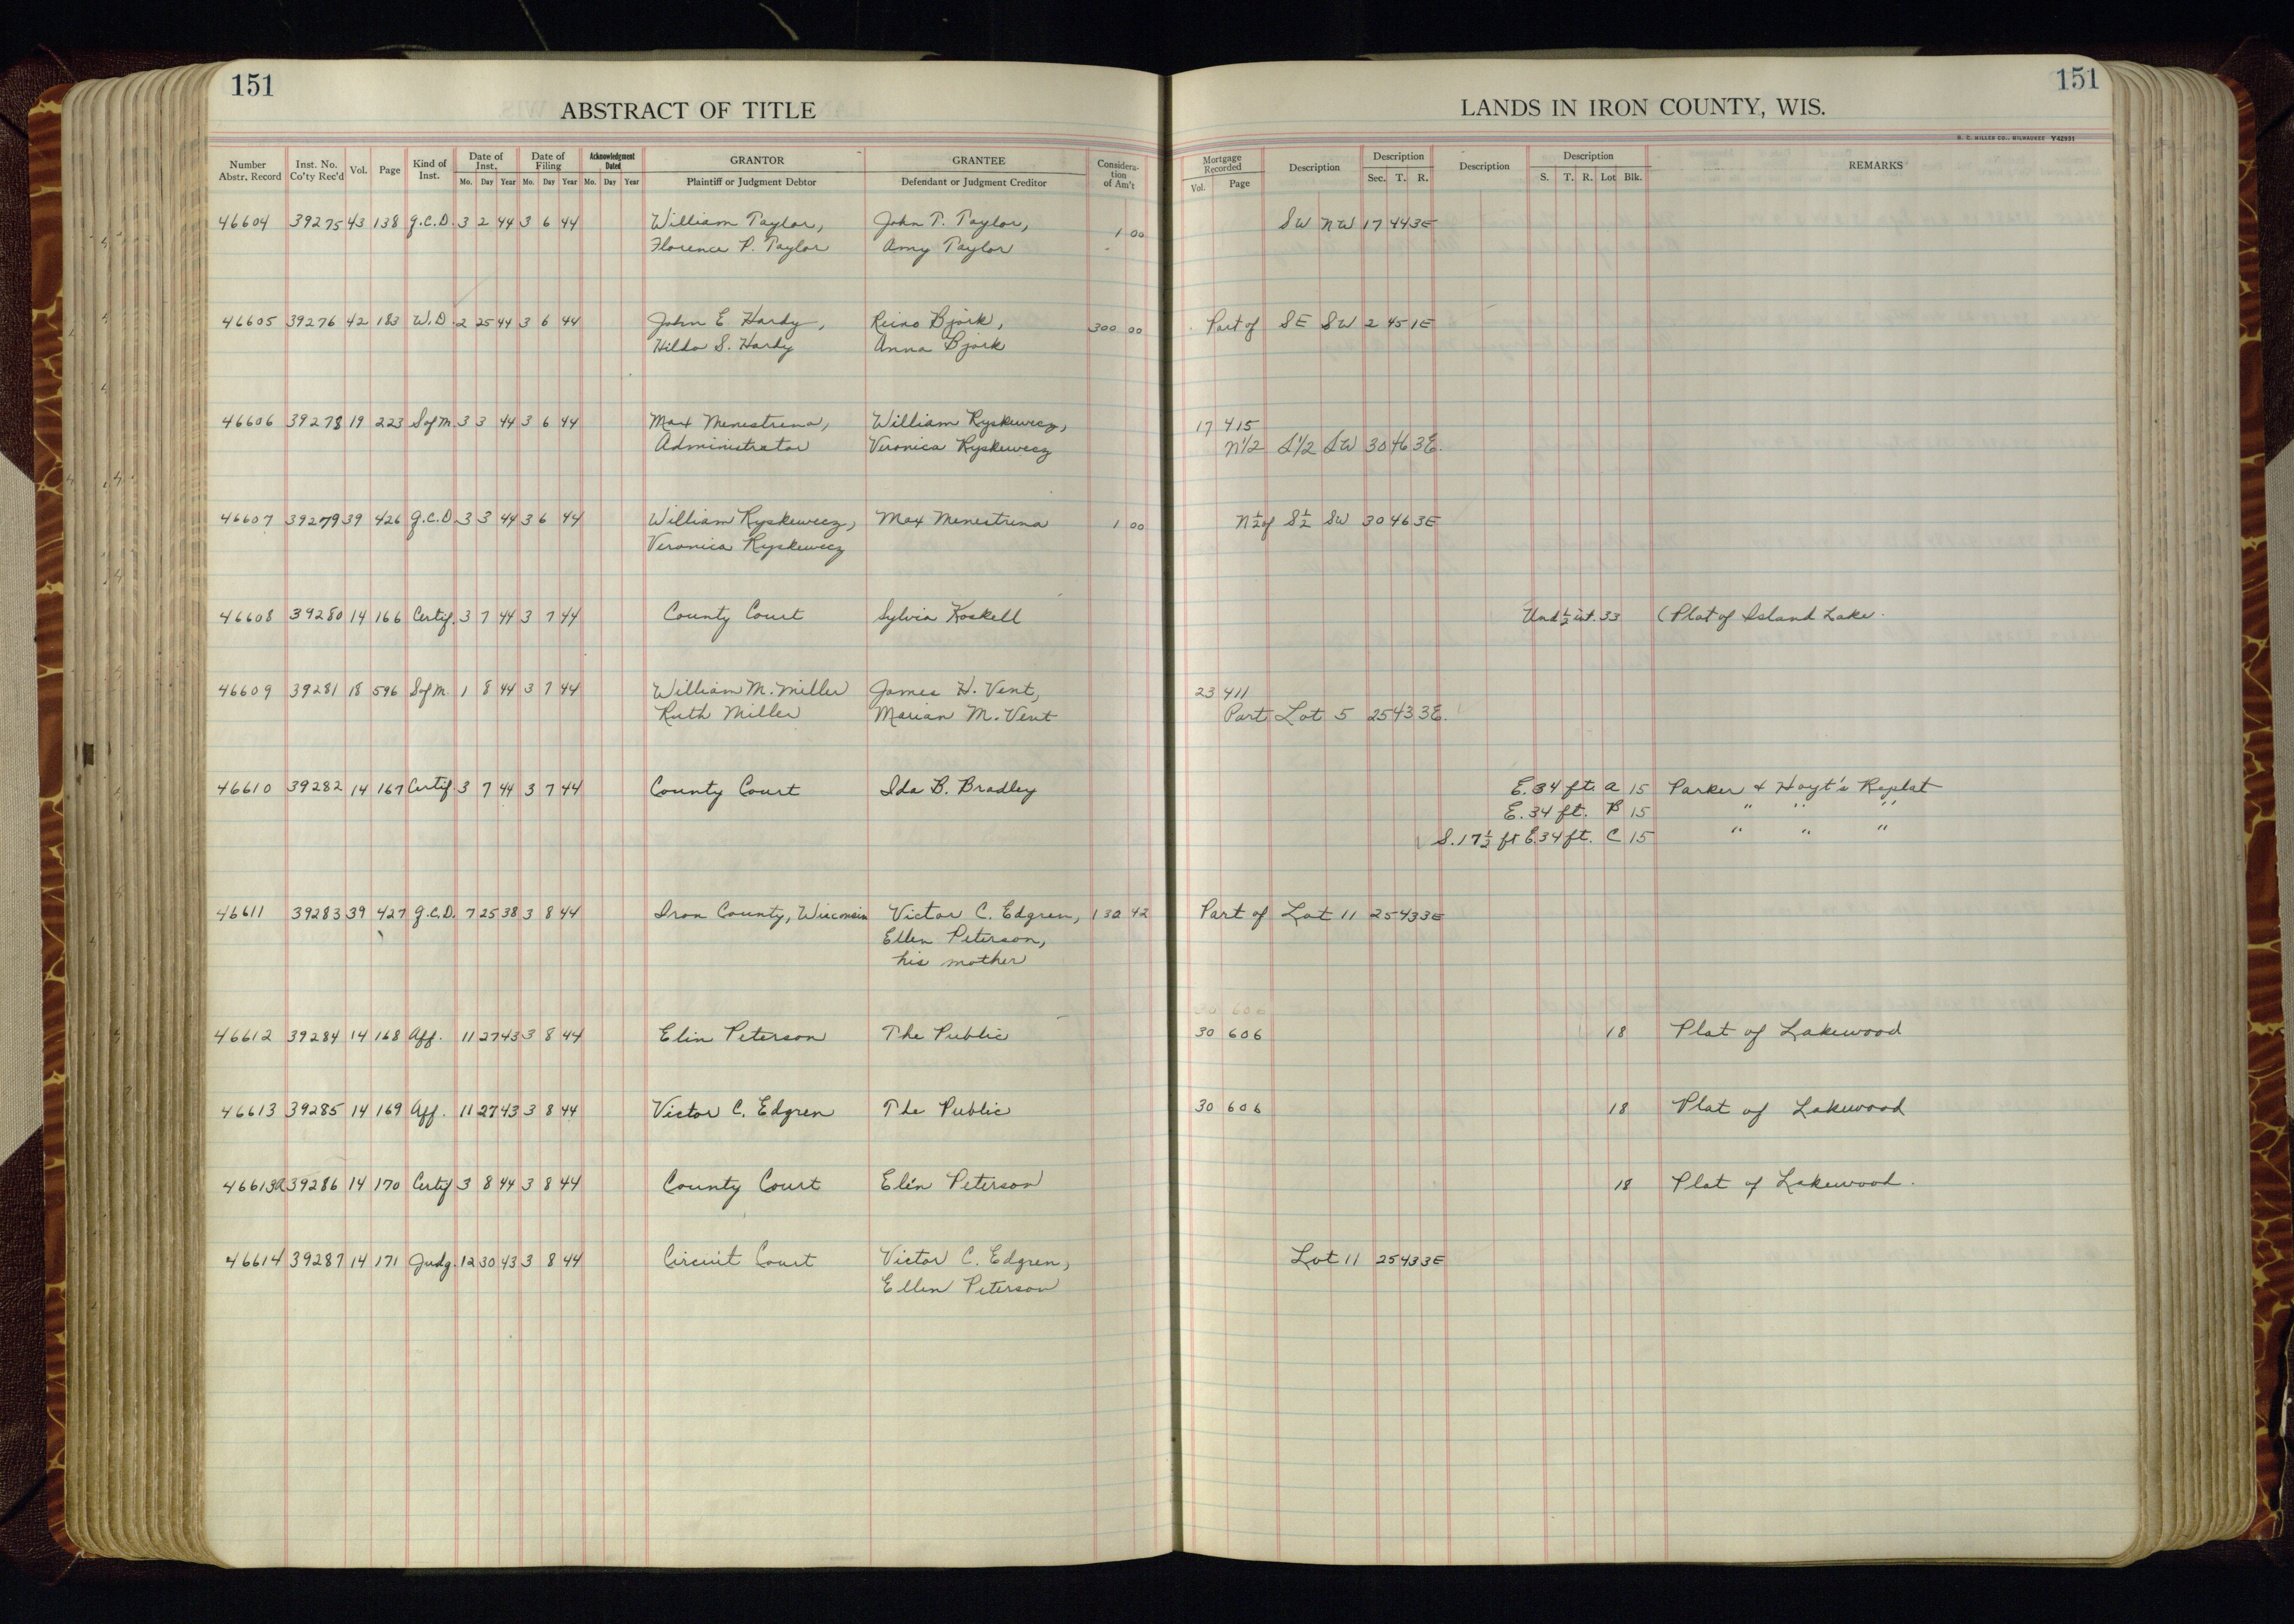 151
ABSTRACT OF TITLE
LANDS IN IRON COUNTY, WIS.
151
H. C. MILLER CO., MILWAUKEE Y42931
Number Abstr. Record Inst. No. Co'ty Rec'd Vol. Page Kind of Inst. Date of Inst. Mo. Day Year Date of Filing Mo. Day Year Acknowledgment Dated Mo. Day Year GRANTOR Plaintiff or Judgment Debtor GRANTEE Defendant or Judgment Creditor Considera-tion of Am't Mortgage Recorded Vol. Page Description Description Sec. T. R. Description Description S. T. R. Lot Blk. REMARKS
46604 39275 43 138 G.C.D. 3 2 44 3 6 44 William Taylor, John T. Taylor, 1 00 SW NW 17 44 3E
Florence P. Taylor Amy Taylor
46605 39276 42 183 W.D. 2 25 44 3 6 44 John E Hardy, Reino Bjork, 300 00 Part of SE SW 2 45 1E
Hilda S. Hardy Anna Bjork
46606 39278 19 223 S of M. 3 3 44 3 6 44 Max Menestrina, William Ryskewecz, 17 415
Administrator Veronica Ryskewecz N1/2 S1/2 SW 30 46 3E.
46607 39279 39 426 G.C.D. 3 3 44 3 6 44 William Ryskewecz, Max Menestrina 1 00 N½ of S½ SW 30 46 3E
Veronica Ryskewecz
46608 39280 14 166 Certif. 3 7 44 3 7 44 County Court Sylvia Koskell Und ½ int. 33 (Plat of Island Lake.
46609 39281 18 596 S of M. 1 8 44 3 7 44 William M. Miller James H. Vent, 23 411
Ruth Miller Marian M. Vent Part Lot 5 25 43 3E.
46610 39282 14 167 Certif. 3 7 44 3 7 44 County Court Ida B. Bradley E. 34 ft. A 15 Parker & Hoyt's Replat
E. 34 ft. B 15 " " "
S. 17½ ft E. 34 ft. C 15 " " "
46611 39283 39 427 G.C.D. 7 25 38 3 8 44 Iron County, Wisconsin Victor C. Edgren, 130 42 Part of Lot 11 25 43 3E
Ellen Peterson,
his mother
30 606
46612 39284 14 168 Aff. 11 27 43 3 8 44 Elin Peterson The Public 30 606 18 Plat of Lakewood
46613 39285 14 169 Aff. 11 27 43 3 8 44 Victor C. Edgren The Public 30 606 18 Plat of Lakewood
46613a 39286 14 170 Certif 3 8 44 3 8 44 County Court Elin Peterson 18 Plat of Lakewood.
46614 39287 14 171 Judg. 12 30 43 3 8 44 Circuit Court Victor C. Edgren, Lot 11 25 43 3E
Ellen Peterson